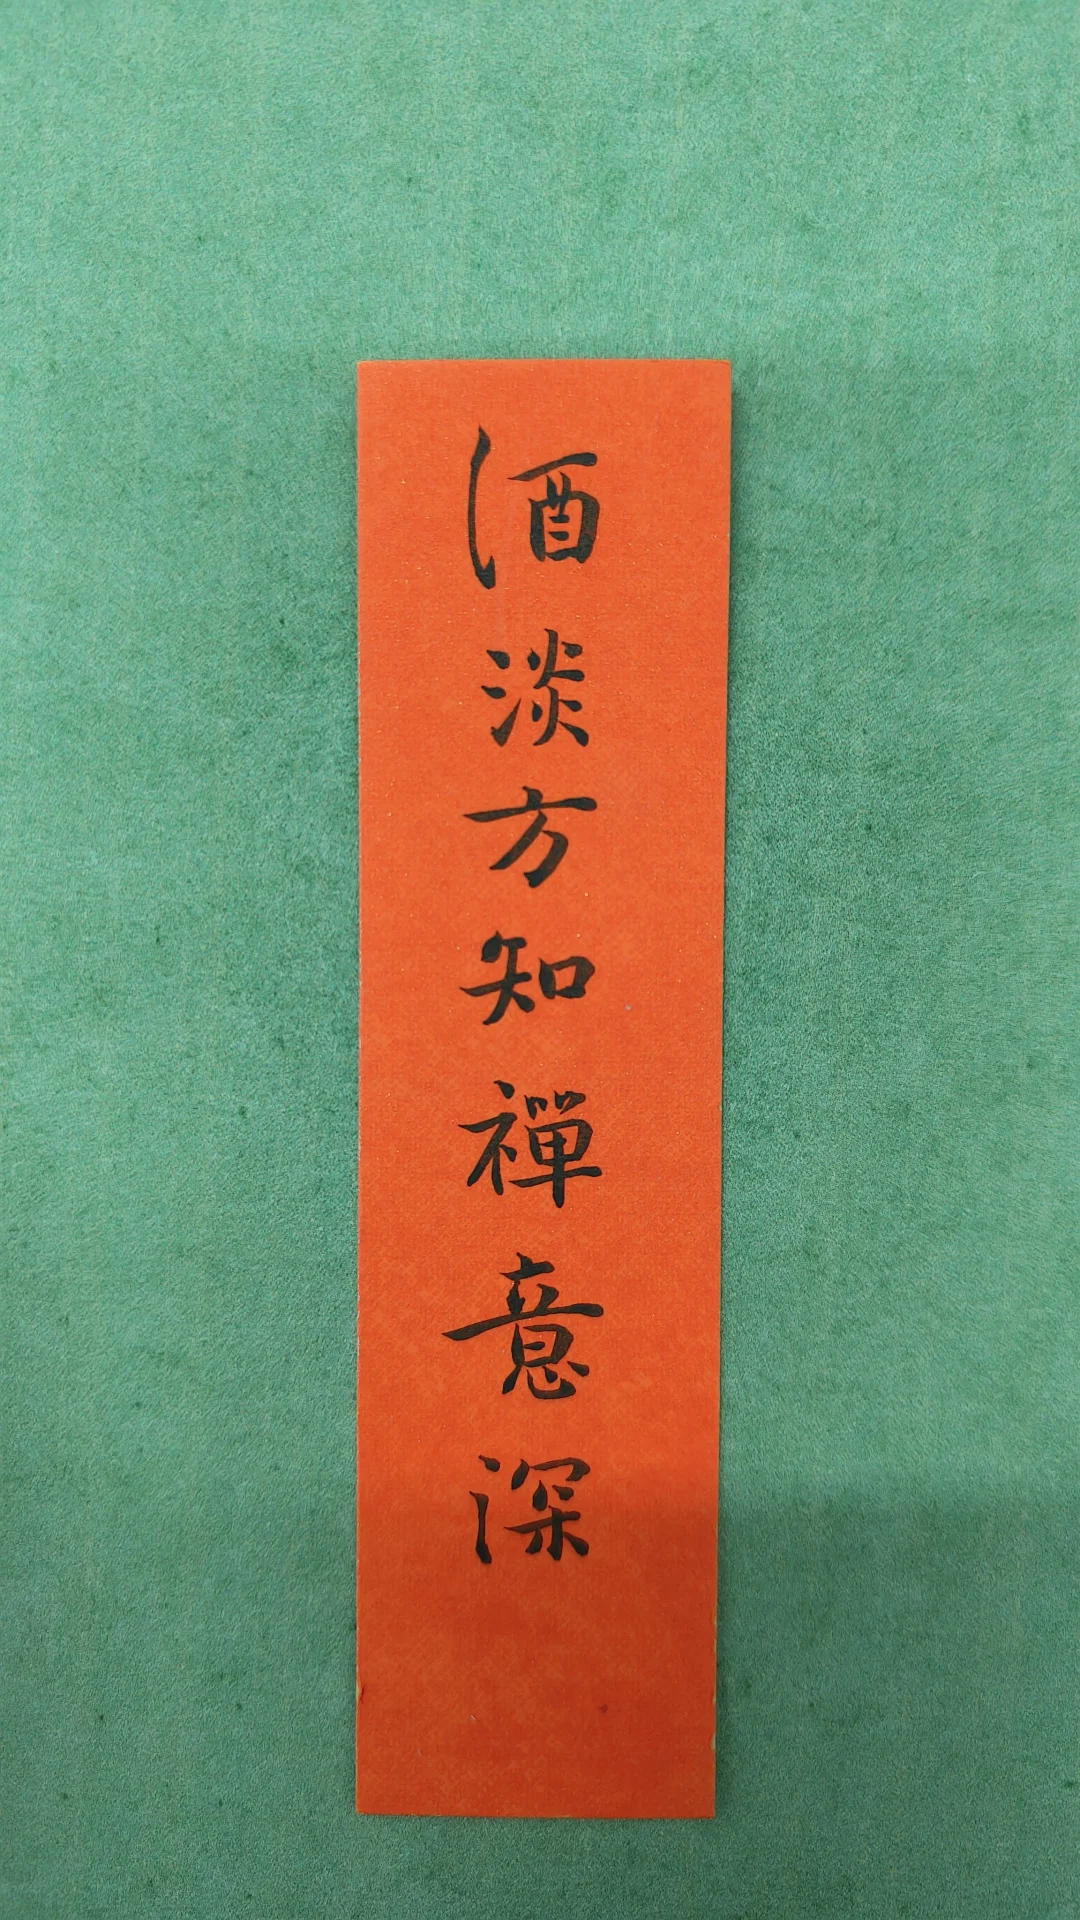 酒淡方知禪意深